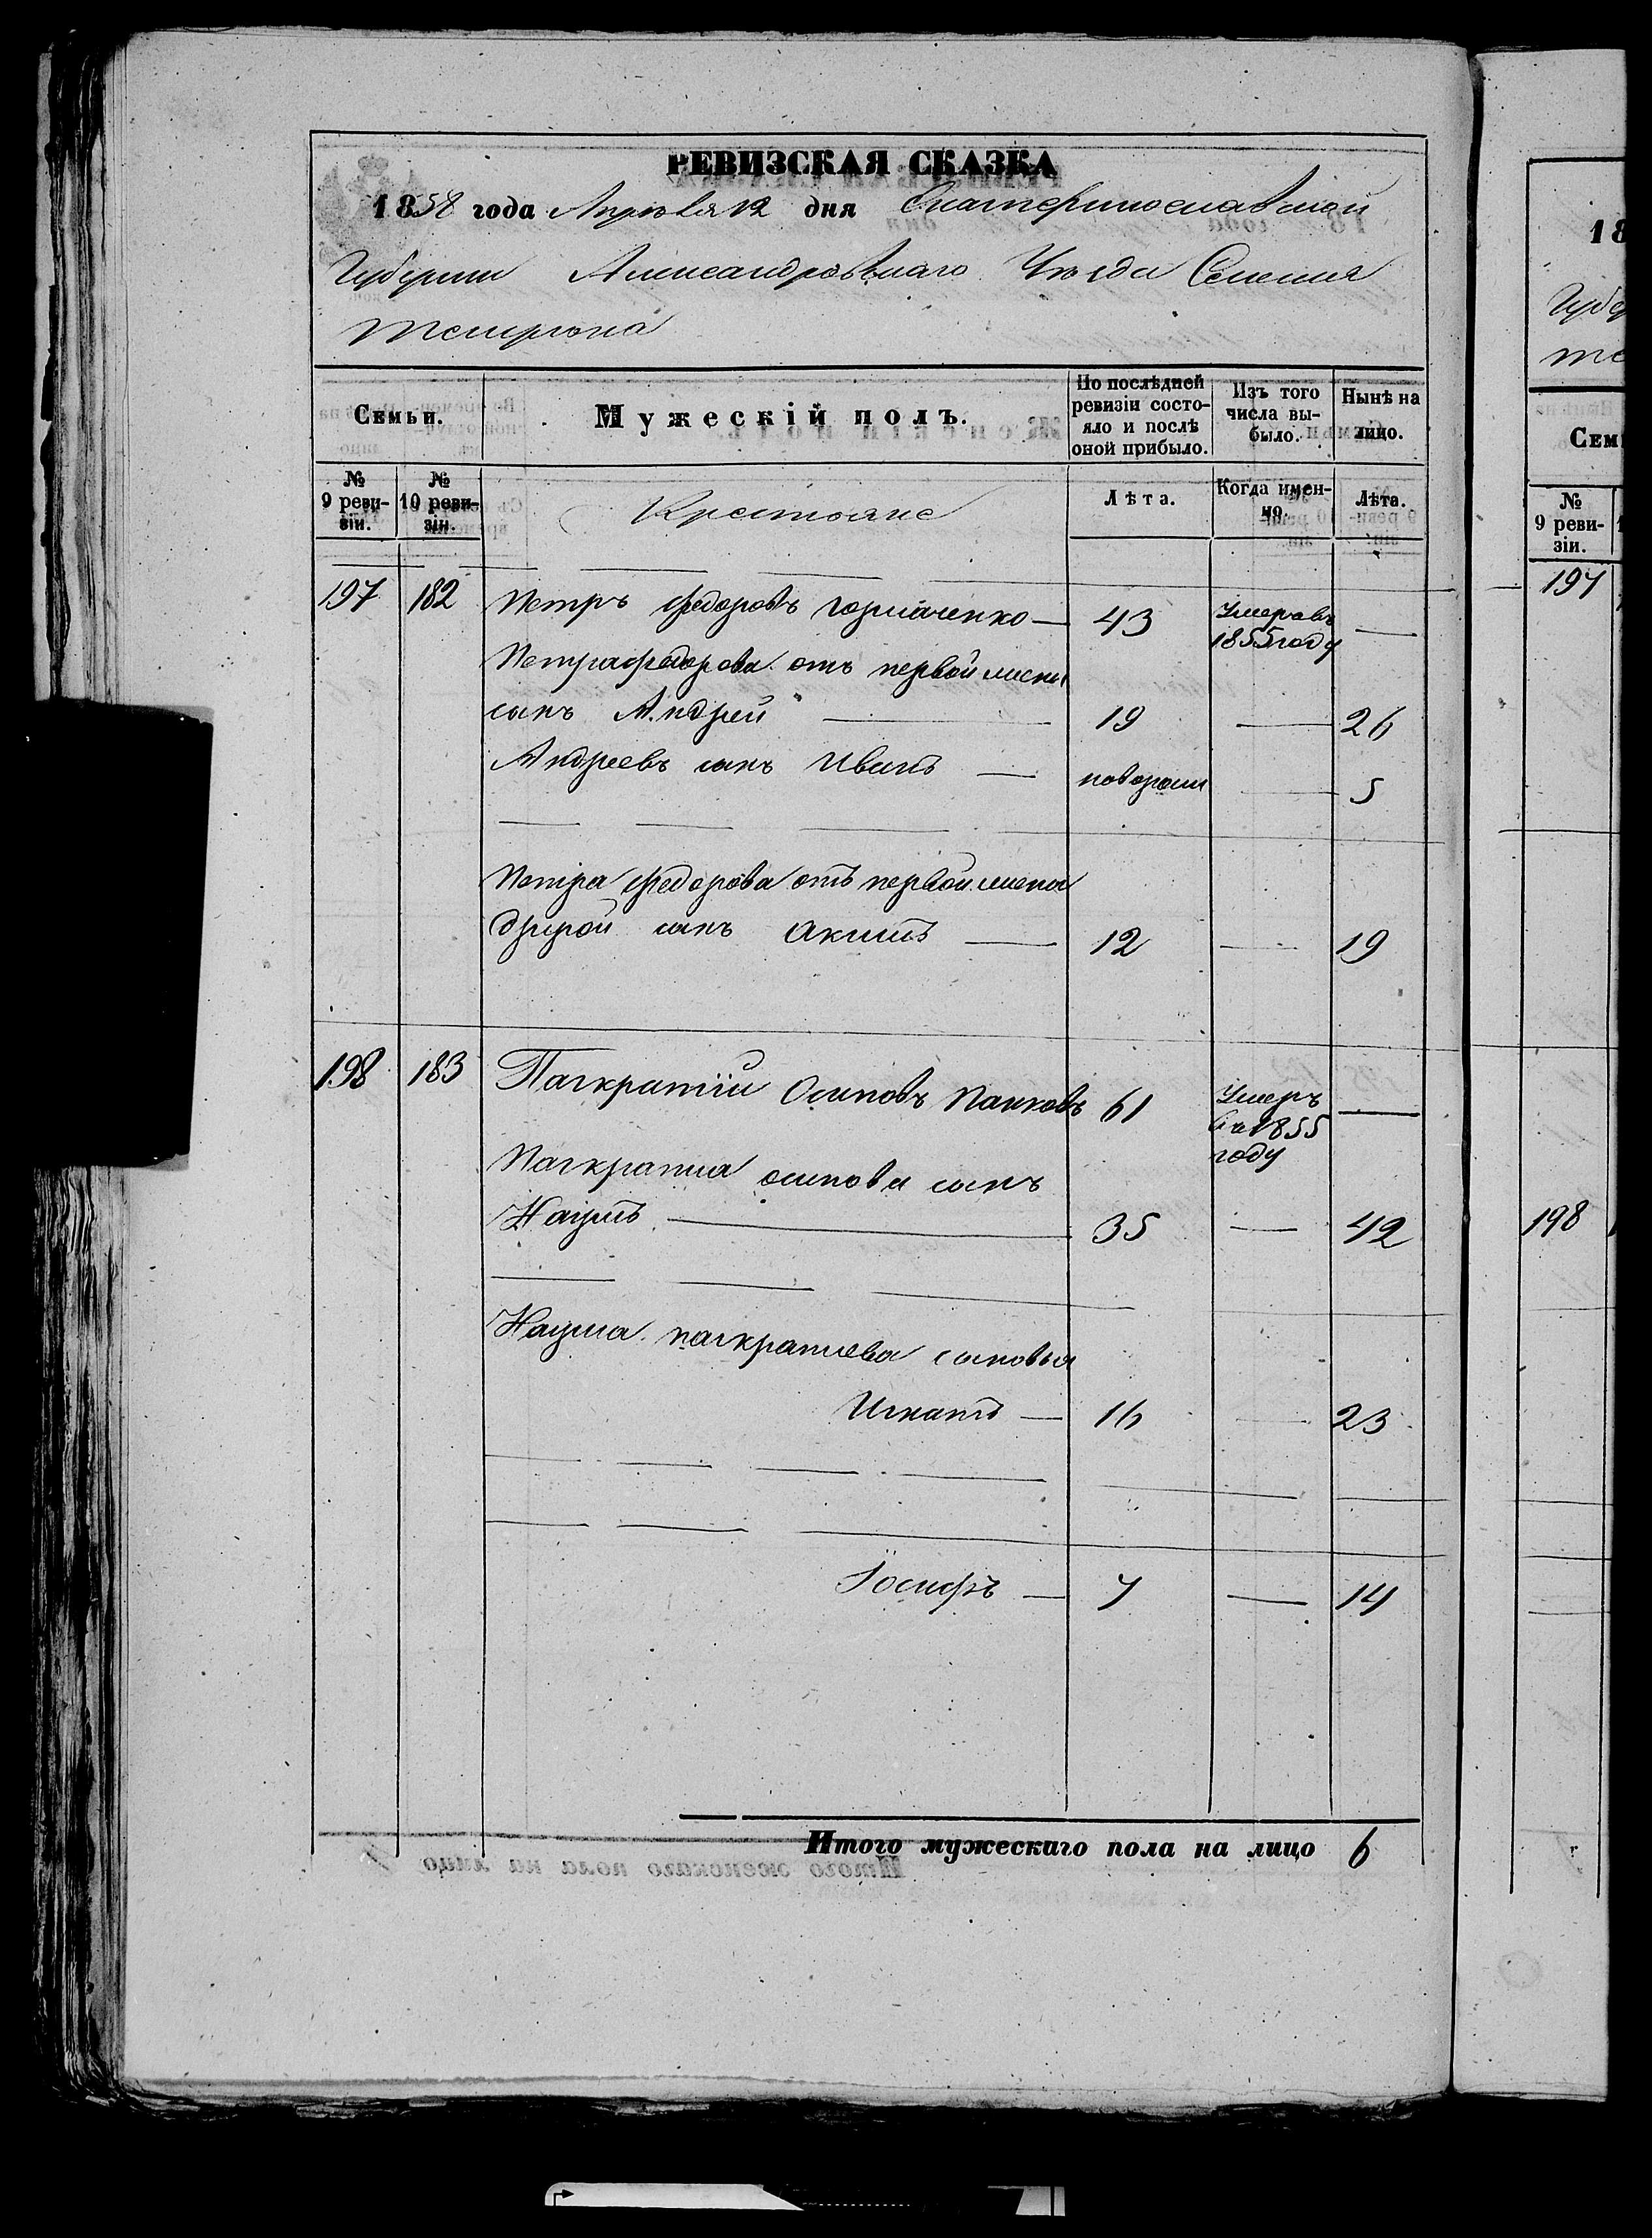 РЕВИЗСКАЯ СКАЗКА
1858 года Апреля 12 дня Екатеринославской
Губернии Александровскаго Уезда Селения
Темрюка
Семьи. Мужескій полъ. По послѣдней ревизіи состояло и послѣ оной прибыло. Изъ того числа выбыло. Нынѣ на лицо.
№ 9 ревизіи. № 10 ревизіи. Крестьяне Лѣта. Когда именно. Лѣта.
197 182 Петръ Федоровъ Горпаченко — 43 Умеръ въ 1855 году —
Петра Федорова отъ первой жены
сынъ Андрей — 19 — 26
Андреевъ сынъ Иванъ — новорож — 5
Петра Федорова отъ первой жены
другой сынъ Акимъ — 12 — 19
198 183 Панкратій Осиповъ Панковъ 61 Умеръ въ 1855 году —
Панкратия Осипова сынъ
Наумъ — 35 — 42
Наума Панкратиева сыновья
Игнатъ — 16 — 23
Іосифъ — 7 — 14
Итого мужескаго пола на лицо 6
18
Губе
те
Сем
№
9 реви-
зіи.
197
198